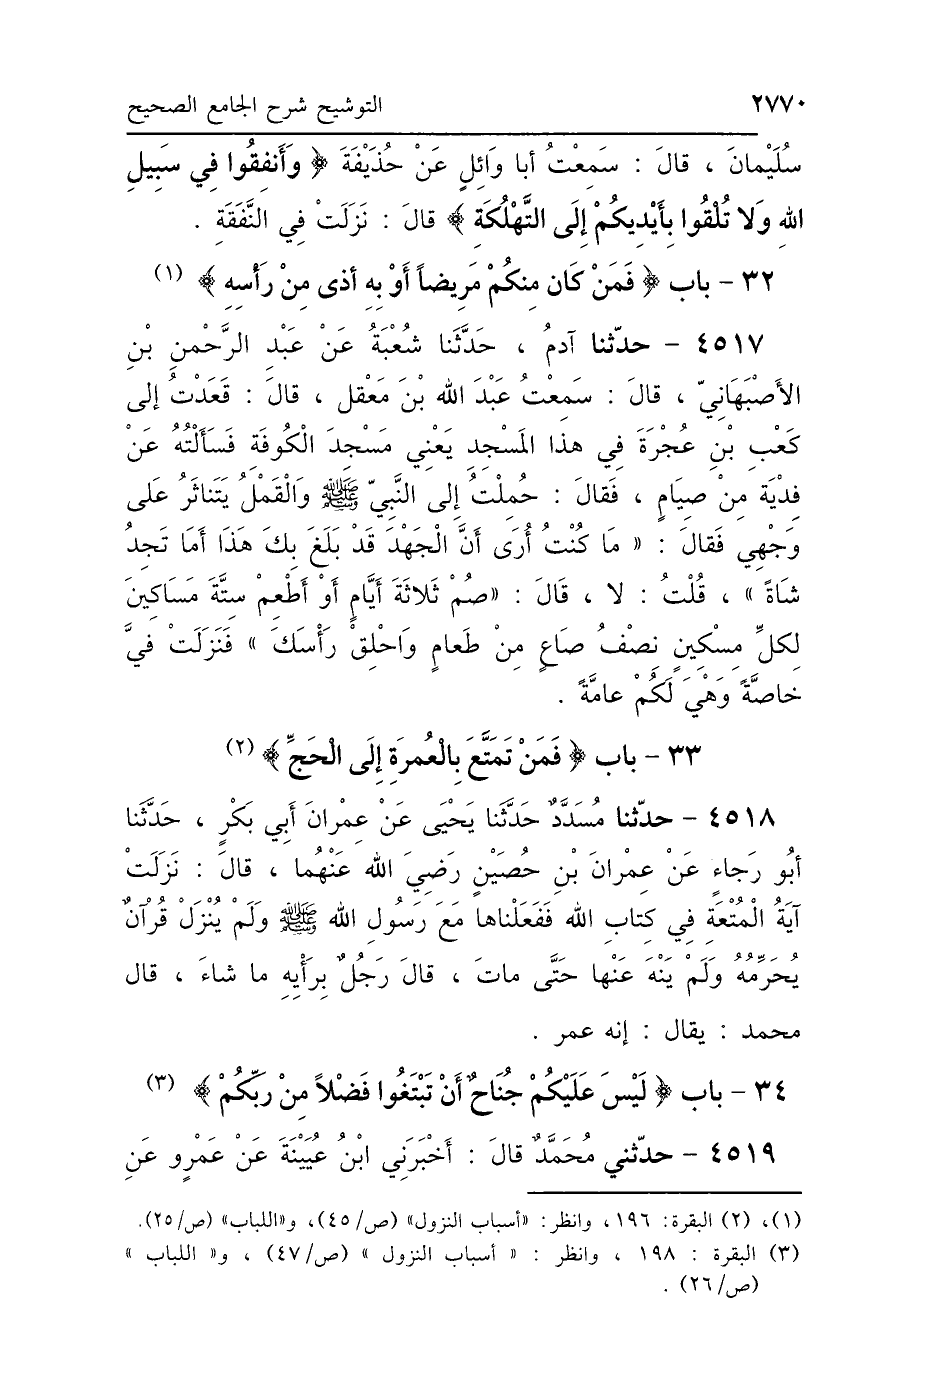 ٢٧٧٠ التوشيح شرح الجامع الصحيح
سُلَيْمانَ ، قالَ : سَمِعْتُ أبا وَائِلٍ عَنْ حُذَيْفَةَ ﴿ وَأَنفِقُوا فِي سَبِيلِ
الله وَلا تُلْقُوا بِأَيْدِيكُمْ إِلَى التَّهْلُكَةِ ﴾ قالَ : نَزَلَتْ فِي النَّفَقَةِ .
٣٢ - باب ﴿ فَمَنْ كَان مِنكُمْ مَرِيضاً أَوْ بِهِ أذى مِنْ رَأْسِهِ ﴾ (١)
٤٥١٧ - حدّثنا آدمُ ، حَدَّثَنا شُعْبَةُ عَنْ عَبْدِ الرَّحْمنِ بنِ
الأَصْبَهَانِيّ ، قالَ : سَمِعْتُ عَبْدَ الله بْنَ مَعْقِلٍ ، قالَ : قَعَدْتُ إلى
كَعْبِ بْنِ عُجْرَةَ فِي هذا المَسْجِدِ يَعْنِي مَسْجِدَ الْكُوفَةِ فَسَأَلْتُهُ عَنْ
فِدْيَةٍ مِنْ صِيَامٍ ، فَقالَ : حُمِلْتُ إلى النَّبِيّ ﷺ وَالْقَمْلُ يَتَناثَرُ عَلى
وَجْهِي فَقالَ : « مَا كُنْتُ أُرَى أَنَّ الْجَهْدَ قَدْ بَلَغَ بِكَ هَذَا أَمَا تَجِدُ
شَاةً » ، قُلْتُ : لا ، قَالَ : «صُمْ ثَلاثَةَ أَيَّامٍ أَوْ أَطْعِمْ سِتَّةَ مَسَاكِينَ
لِكلِّ مِسْكِينٍ نِصْفُ صَاعٍ مِنْ طَعامٍ وَاحْلِقْ رَأْسَكَ » فَنَزَلَتْ فِيَّ
خاصَّةً وَهْيَ لَكُمْ عامَّةً .
٣٣ - باب ﴿ فَمَنْ تَمَتَّعَ بِالْعُمرَةِ إِلَى الْحَجِّ ﴾ (٢)
٤٥١٨ - حدّثنا مُسَدَّدٌ حَدَّثَنا يَحْيَى عَنْ عِمْرانَ أَبِي بَكْرٍ ، حَدَّثَنا
أبُو رَجاءٍ عَنْ عِمْرانَ بْنِ حُصَيْنٍ رَضِيَ الله عَنْهُما ، قالَ : نَزَلَتْ
آيَةُ الْمُتْعَةِ فِي كتابِ الله فَفَعَلْناها مَعَ رَسُولِ الله ﷺ وَلَمْ يُنْزَلْ قُرْآنٌ
يُحَرِّمُهُ وَلَمْ يَنْهَ عَنْها حَتَّى ماتَ ، قالَ رَجُلٌ بِرَأْيِهِ ما شاءَ ، قال
محمد : يقال : إنه عمر .
٣٤ - باب ﴿ لَيْسَ عَلَيْكُمْ جُنَاحٌ أَنْ تَبْتَغُوا فَضْلاً مِنْ رَبِّكُمْ ﴾ (٣)
٤٥١٩ - حدّثني مُحَمَّدٌ قالَ : أَخْبَرَنِي ابْنُ عُيَيْنَةَ عَنْ عَمْرٍو عَنِ
(١)، (٢) البقرة: ١٩٦، وانظر: «أسباب النزول» (ص/٤٥)، و«اللباب» (ص/٢٥).
(٣) البقرة : ١٩٨ ، وانظر : « أسباب النزول » (ص/٤٧) ، و« اللباب »
(ص/٢٦) .